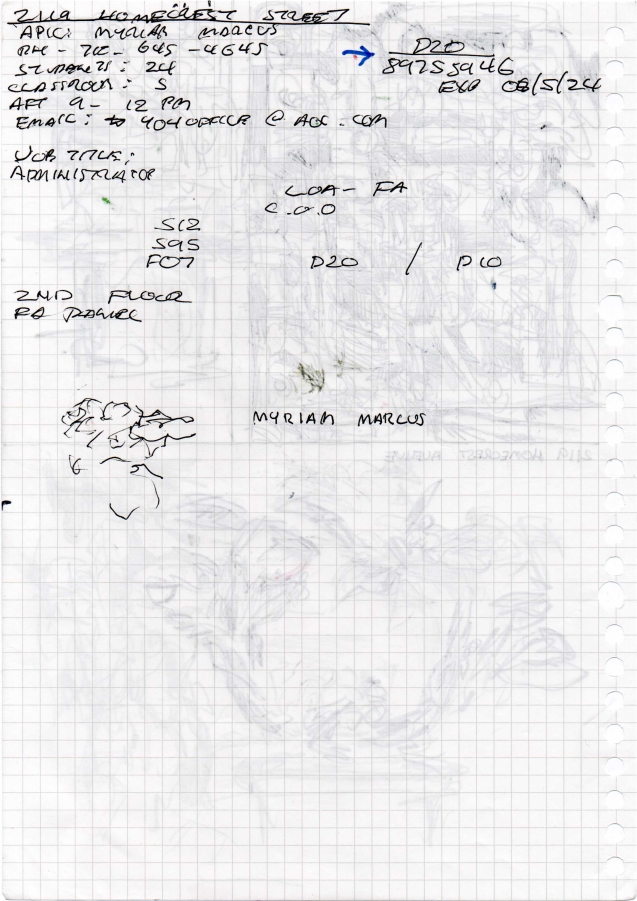 2119 HOMECREST STREET
APIC: MYRIAM MARCUS
PH - 718 - 645 - 4645
STUDENTS: 24
CLASSROOM: 5
AFT 9 - 12 PM
EMAIL: 4040OFFICE @ AOL.COM
D20
89255946
EXP 08/5/24
JOB TITLE:
ADMINISTRATOR
LOA - FA
C.O.O
S12
S95
F07 D20 / D10
2ND FLOOR
FA
MYRIAM MARCUS
2119 HOMECREST AVENUE